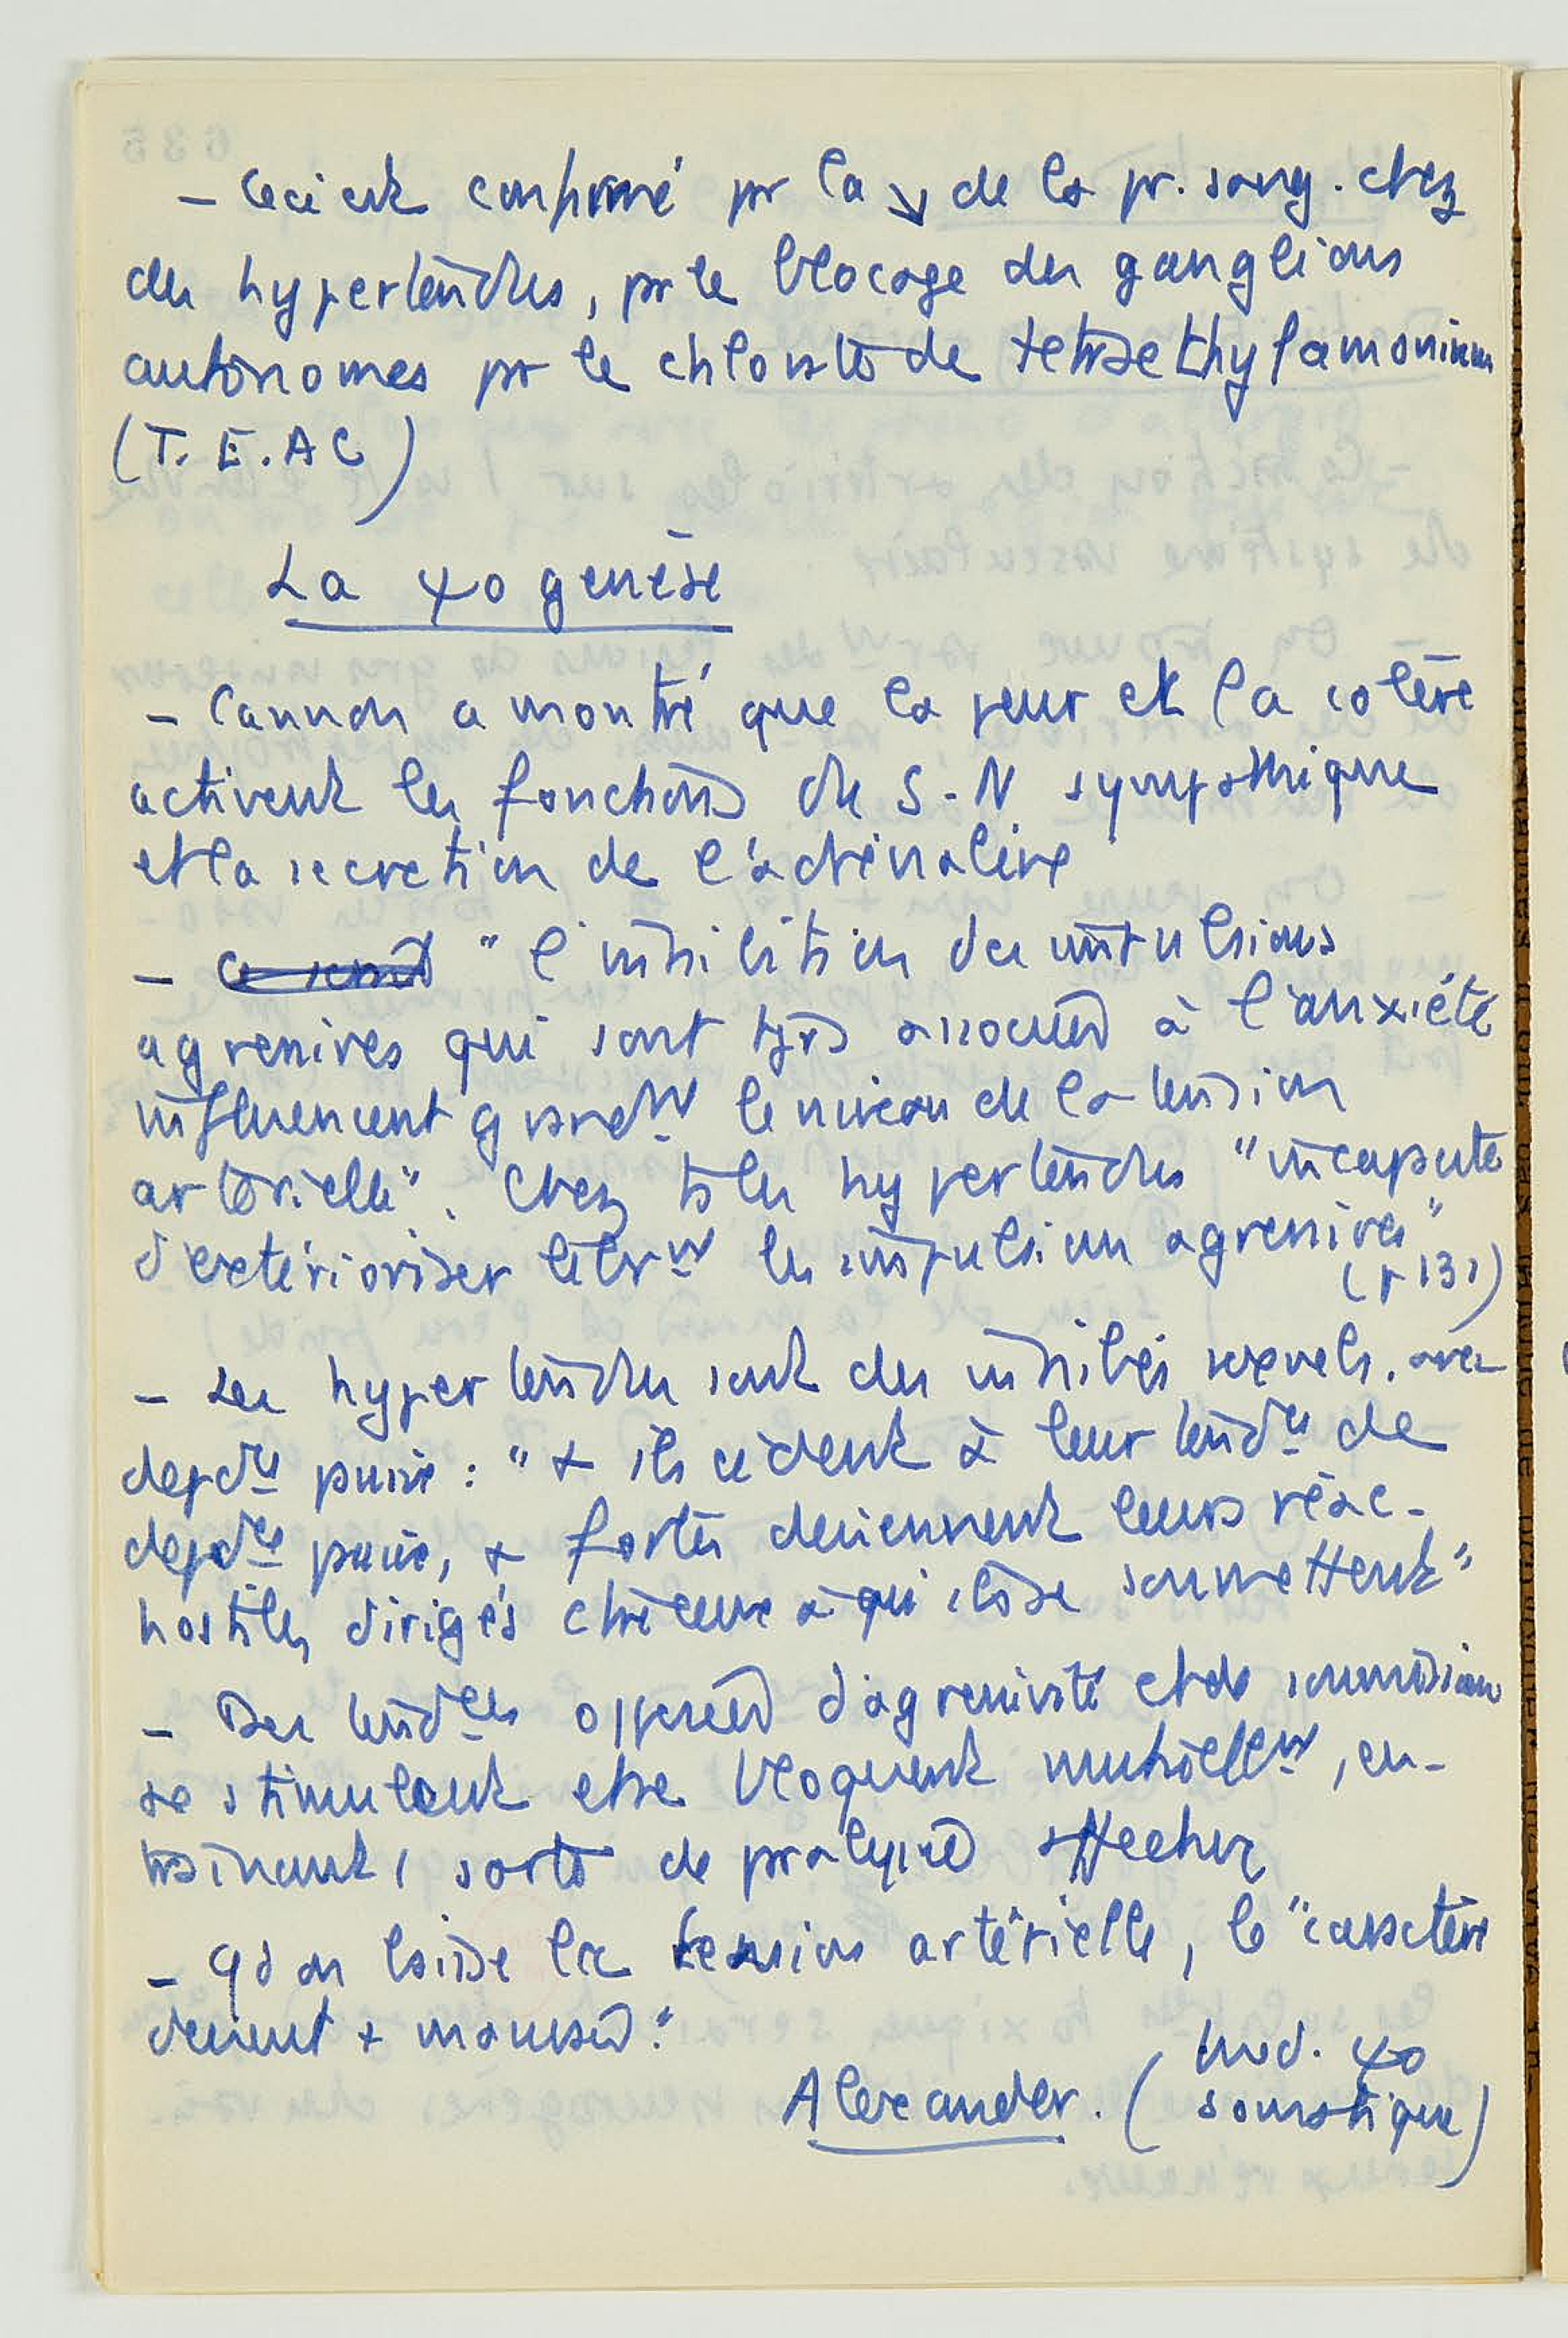 - Ceci est confirmé pr la ↘ de la pr. sang. chez
des hypertendus, pr le blocage des ganglions
autonomes pr le chlorure de tetraethylamonium
(T.E.AC)
La ψo genèse
- Cannon a montré que la peur et la colère
activent les fonctions du S-N sympathique
et la secretion de l'adrénaline
- "l'inhibition des impulsions
agressives qui sont tjrs associées à l'anxiété
influencent grandt le niveau de la tension
artérielle". Chez ts les hypertendus "incapacité
d'extérioriser librt les impulsions agressives"
(p 131)
- Les hypertendus sont des inhibés sexuels. avec
depdce : "+ ils cèdent à leur tendce de
depdce , + fortes deviennent leurs réac-
hostiles dirigés ctre ceux à qui ils se soumettent"
- Des tendces opposées d'agressivité et de soumission
se stimulent et se bloquent mutuellt, en-
trainant 1 sorte de paralysie affective
- qd on baisse la tension artérielle, le "caractère
devient + mauvais."
Alexander. (Med. ψo
somatique)